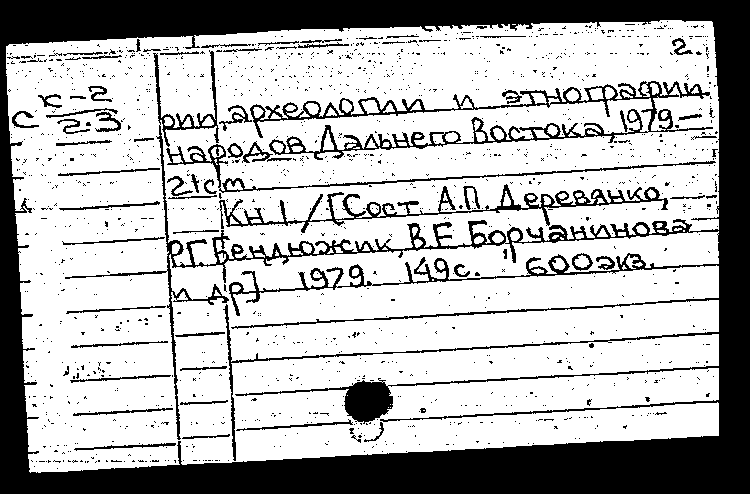 2.
с к-2
2.3.
рии, археологии и этнографии
народов Дальнего Востока, 1979.—
21 cm.
Кн. 1. / [Сост. А.П. Деревянко,
Р.Г. Бендюжик, В.Е. Борчанинова
и др]. 1979. 149 с. 600 экз.